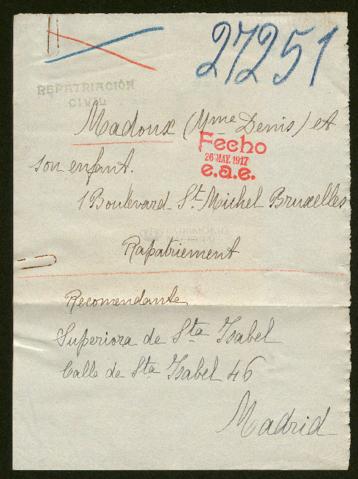 27251
REPATRIACIÓN
CIVIL
Madoux (Mme Denis) et
son enfant.
Fecho
26 MAY. 1917
e.a.e.
1 Boulevard St Michel Bruxelles
Rapatriement
Recomendante
Superiora de Sta Isabel
Calle de Sta Isabel 46
Madrid